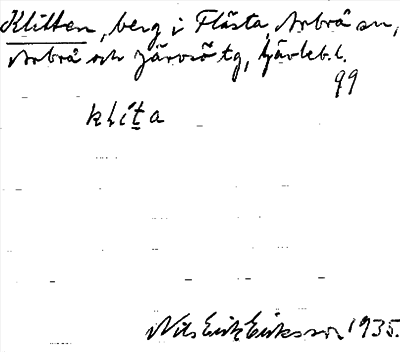 Klitten, berg i Flästa, Arbrå sn,
Arbrå och Järvsö tg, Gävleb. l.
99
klíta
Nils Erik Eriksson 1935.